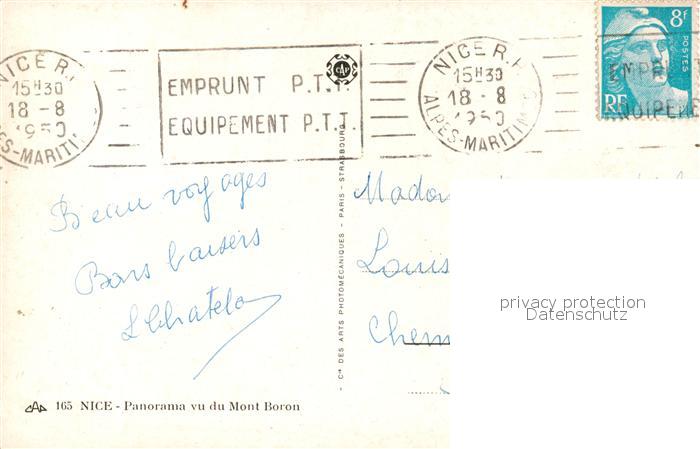 NICE R.P.
15H30
18-8
1950
ALPES-MARITIMES
EMPRUNT P.T.T.
EQUIPEMENT P.T.T.
CAP
NICE R.P.
15H30
18-8
1950
ALPES-MARITIMES
8F
POSTES
RF
EMPRU
QUIPEME
Beau voyages
Bons baisers
Madam
Louis
Chem
Cie DES ARTS PHOTOMÉCANIQUES - PARIS - STRASBOURG
privacy protection
Datenschutz
CAP 165 NICE - Panorama vu du Mont Boron